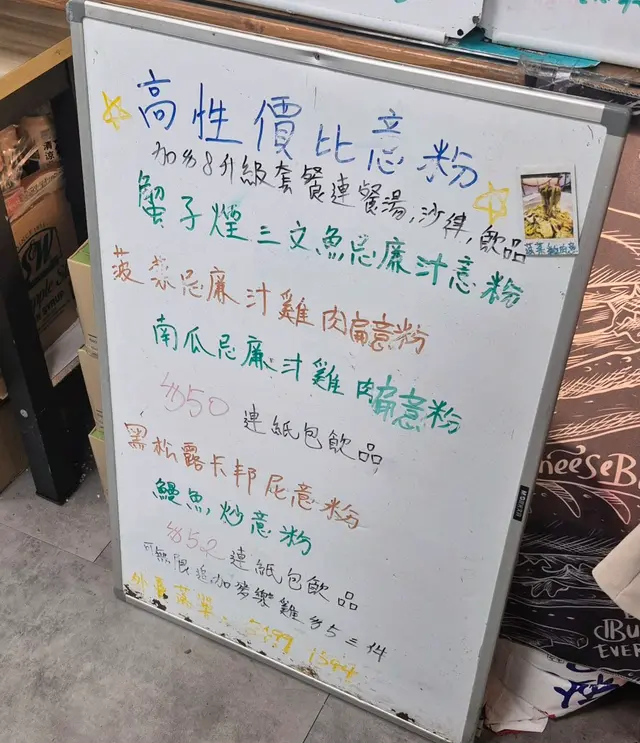 高性價比意粉
加$8升級套餐連餐湯,沙律,飲品
蟹子煙三文魚忌廉汁意粉
菠菜忌廉汁雞肉扁意粉
南瓜忌廉汁雞肉扁意粉
$50 連紙包飲品
黑松露卡邦尼意粉
鰻魚炒意粉
$52 連紙包飲品
可無限追加麥樂雞$5三件
外賣落單: 5499 1594
CheeseBu
Bu
EVER
清涼